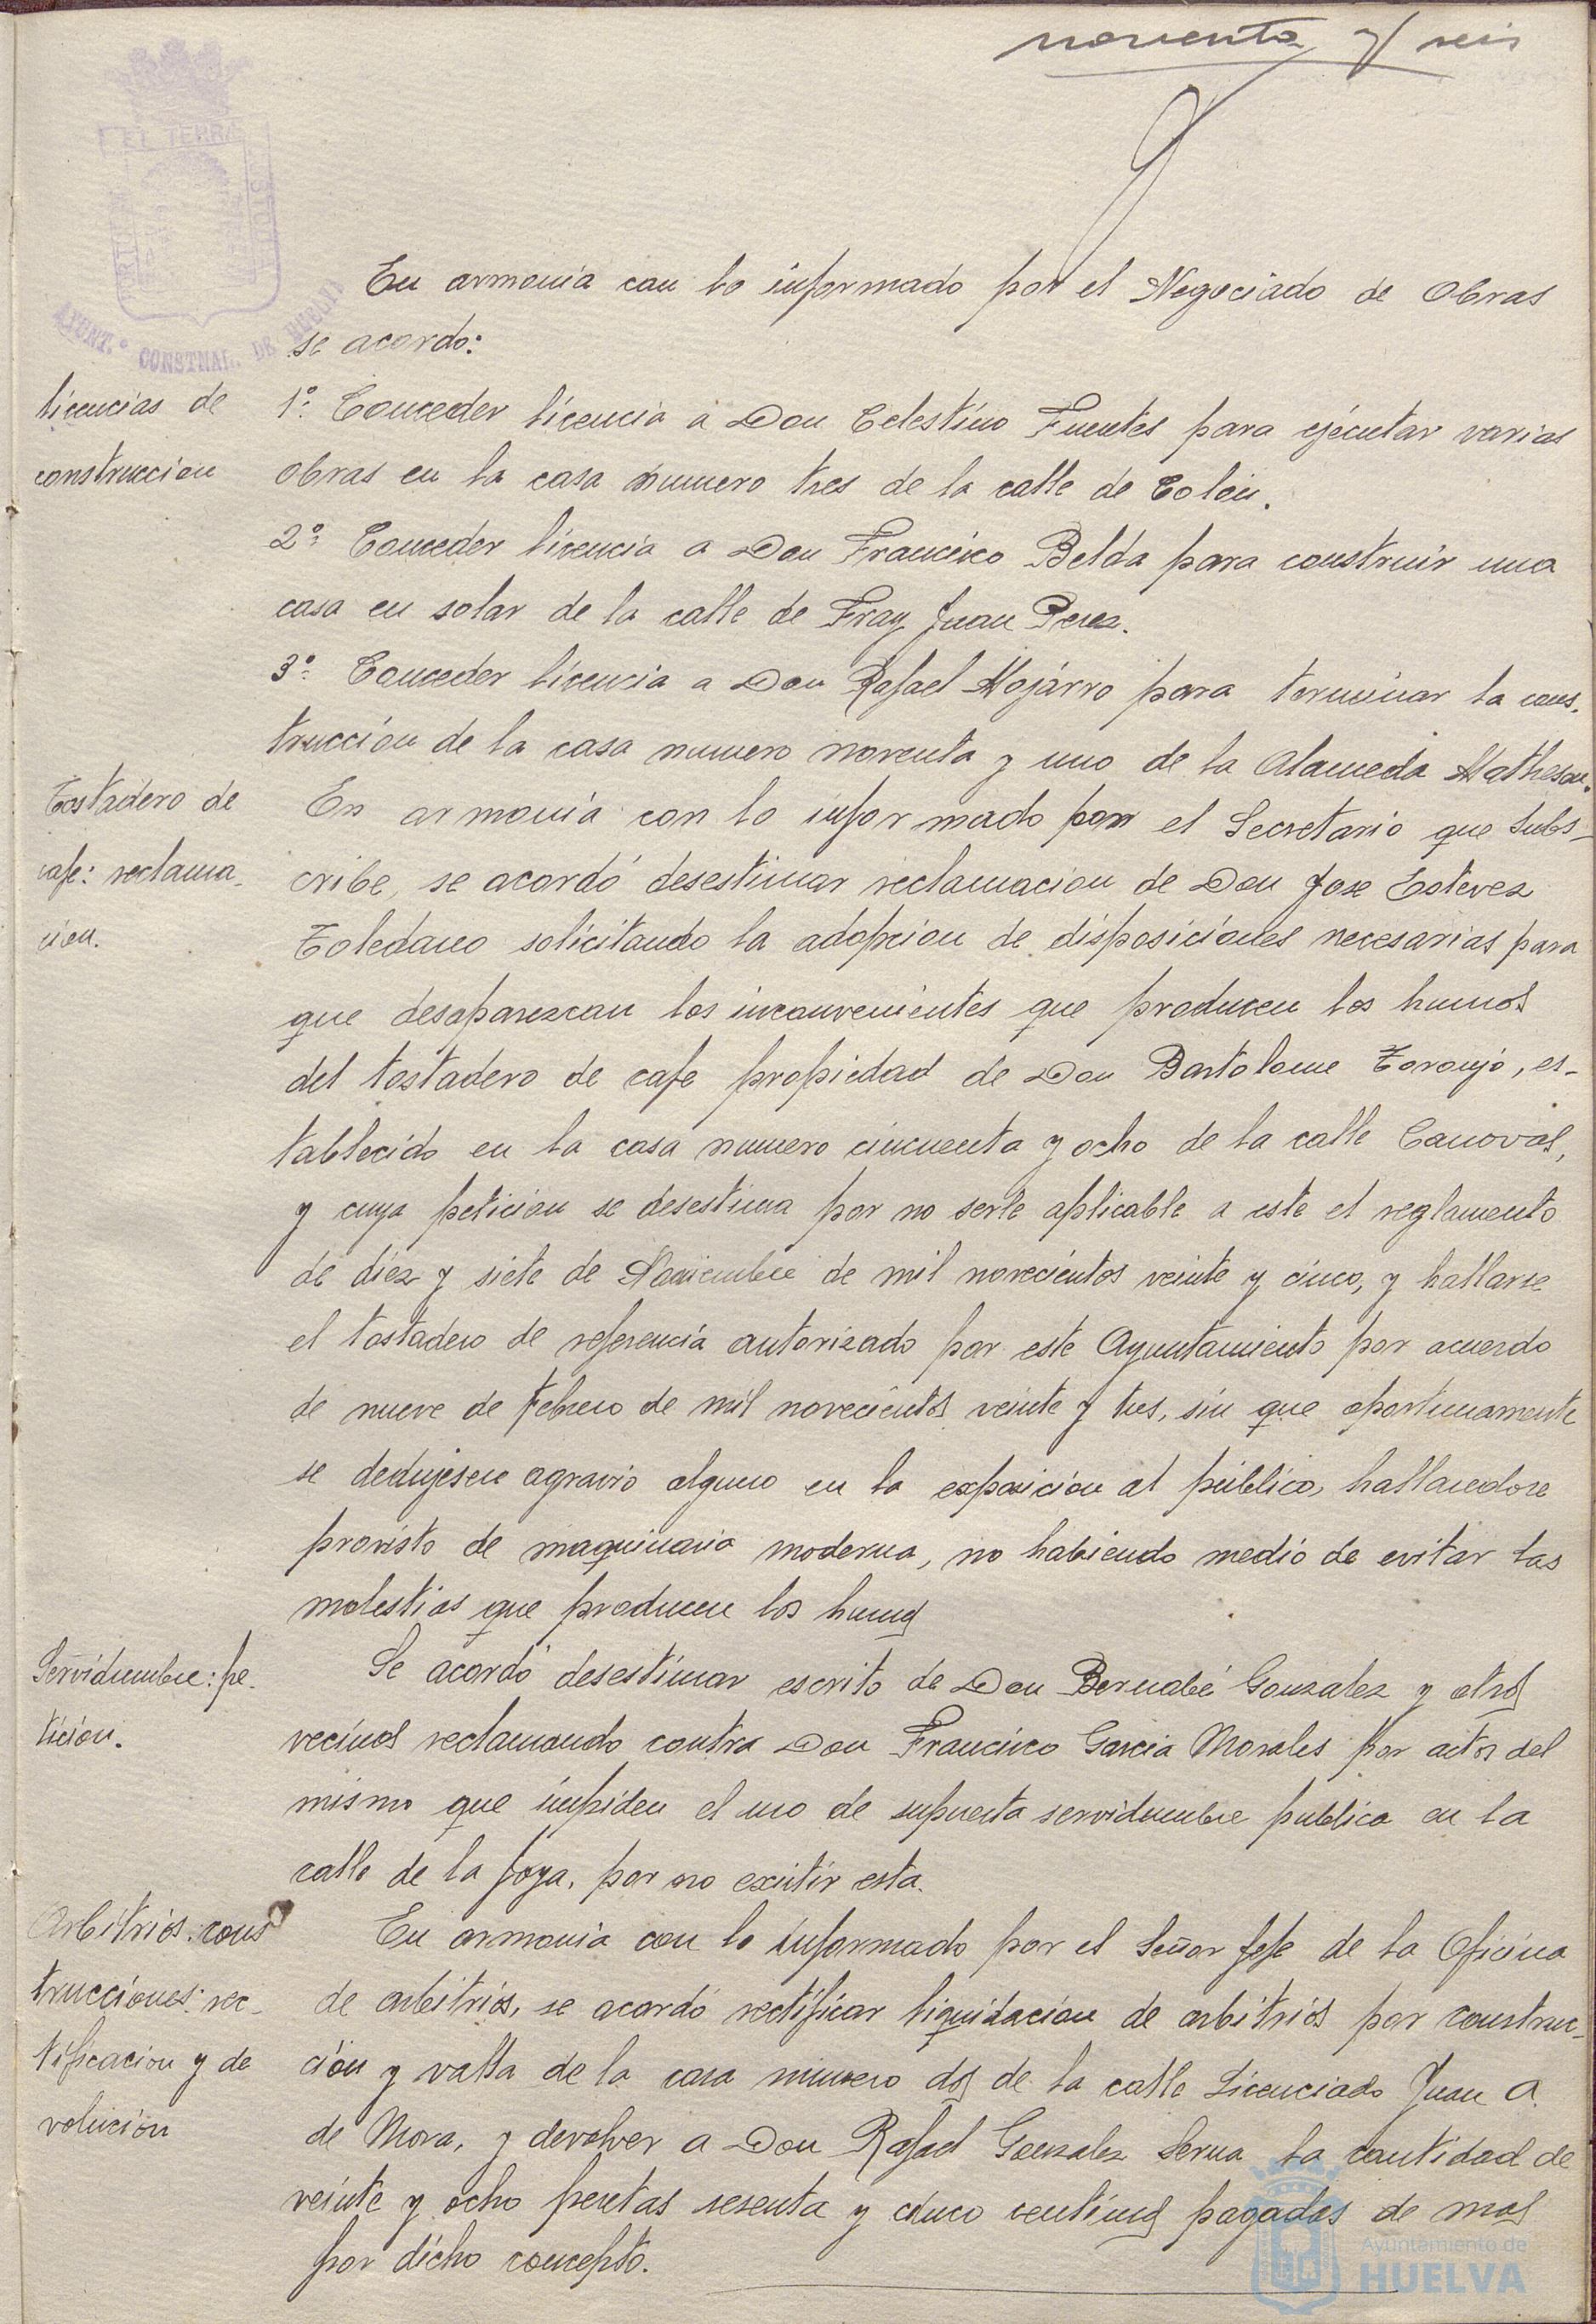 noventa y seis
EL TERRÆ
AYUNT.º CONSTNAL. DE HUELVA
En armonia con lo informado por el Negociado de Obras
se acordo:
licencias de
construccion
1º. Conceder licencia a Don Celestino Fuentes para ejecutar varias
obras en la casa numero tres de la calle de Colón.
2º. Conceder licencia a Don Francisco Belda para construir una
casa en solar de la calle de Fray Juan Perez.
3º. Conceder licencia a Don Rafael Mojarro para terminar la cons-
trucción de la casa numero noventa y uno de la Alameda Matheson.
Tostadero de
cafe: reclama-
cion.
En armonía con lo informado por el Secretario que subs-
cribe, se acordó desestimar reclamacion de Don Jose Estevez
Toledano solicitando la adopcion de disposiciones necesarias para
que desaparezcan los inconvenientes que producen los humos
del tostadero de cafe propiedad de Don Bartolome Toronjo, es-
tablecido en la casa numero cincuenta y ocho de la calle Canovas,
y cuya peticion se desestima por no serle aplicable a este el reglamento
de diez y siete de Noviembre de mil novecientos veinte y cinco, y hallarse
el tostadero de referencia autorizado por este Ayuntamiento por acuerdo
de nueve de Febrero de mil novecientos veinte y tres, sin que oportunamente
se dedujesen agravio alguno en la exposición al público, hallandose
provisto de maquinaria moderna, no habiendo medio de evitar las
molestias que producen los humos
Servidumbre: pe-
tición.
Se acordó desestimar escrito de Don Bernabé Gonzalez y otros
vecinos reclamando contra Don Francisco Garcia Morales por actos del
mismo que impiden el uso de supuesta servidumbre publica en la
calle de la Joya, por no existir esta.
Arbitrios: cons
trucciones: rec-
tificacion y de
volución
En armonia con lo informado por el Señor Jefe de la Oficina
de arbitrios, se acordó rectificar liquidación de arbitrios por construc-
ción y valla de la casa numero dos de la calle Licenciado Juan A.
de Mora, y devolver a Don Rafael Gonzalez Serna la cantidad de
veinte y ocho pesetas sesenta y cinco centimos pagadas de mas
por dicho concepto.
Ayuntamiento de
HUELVA